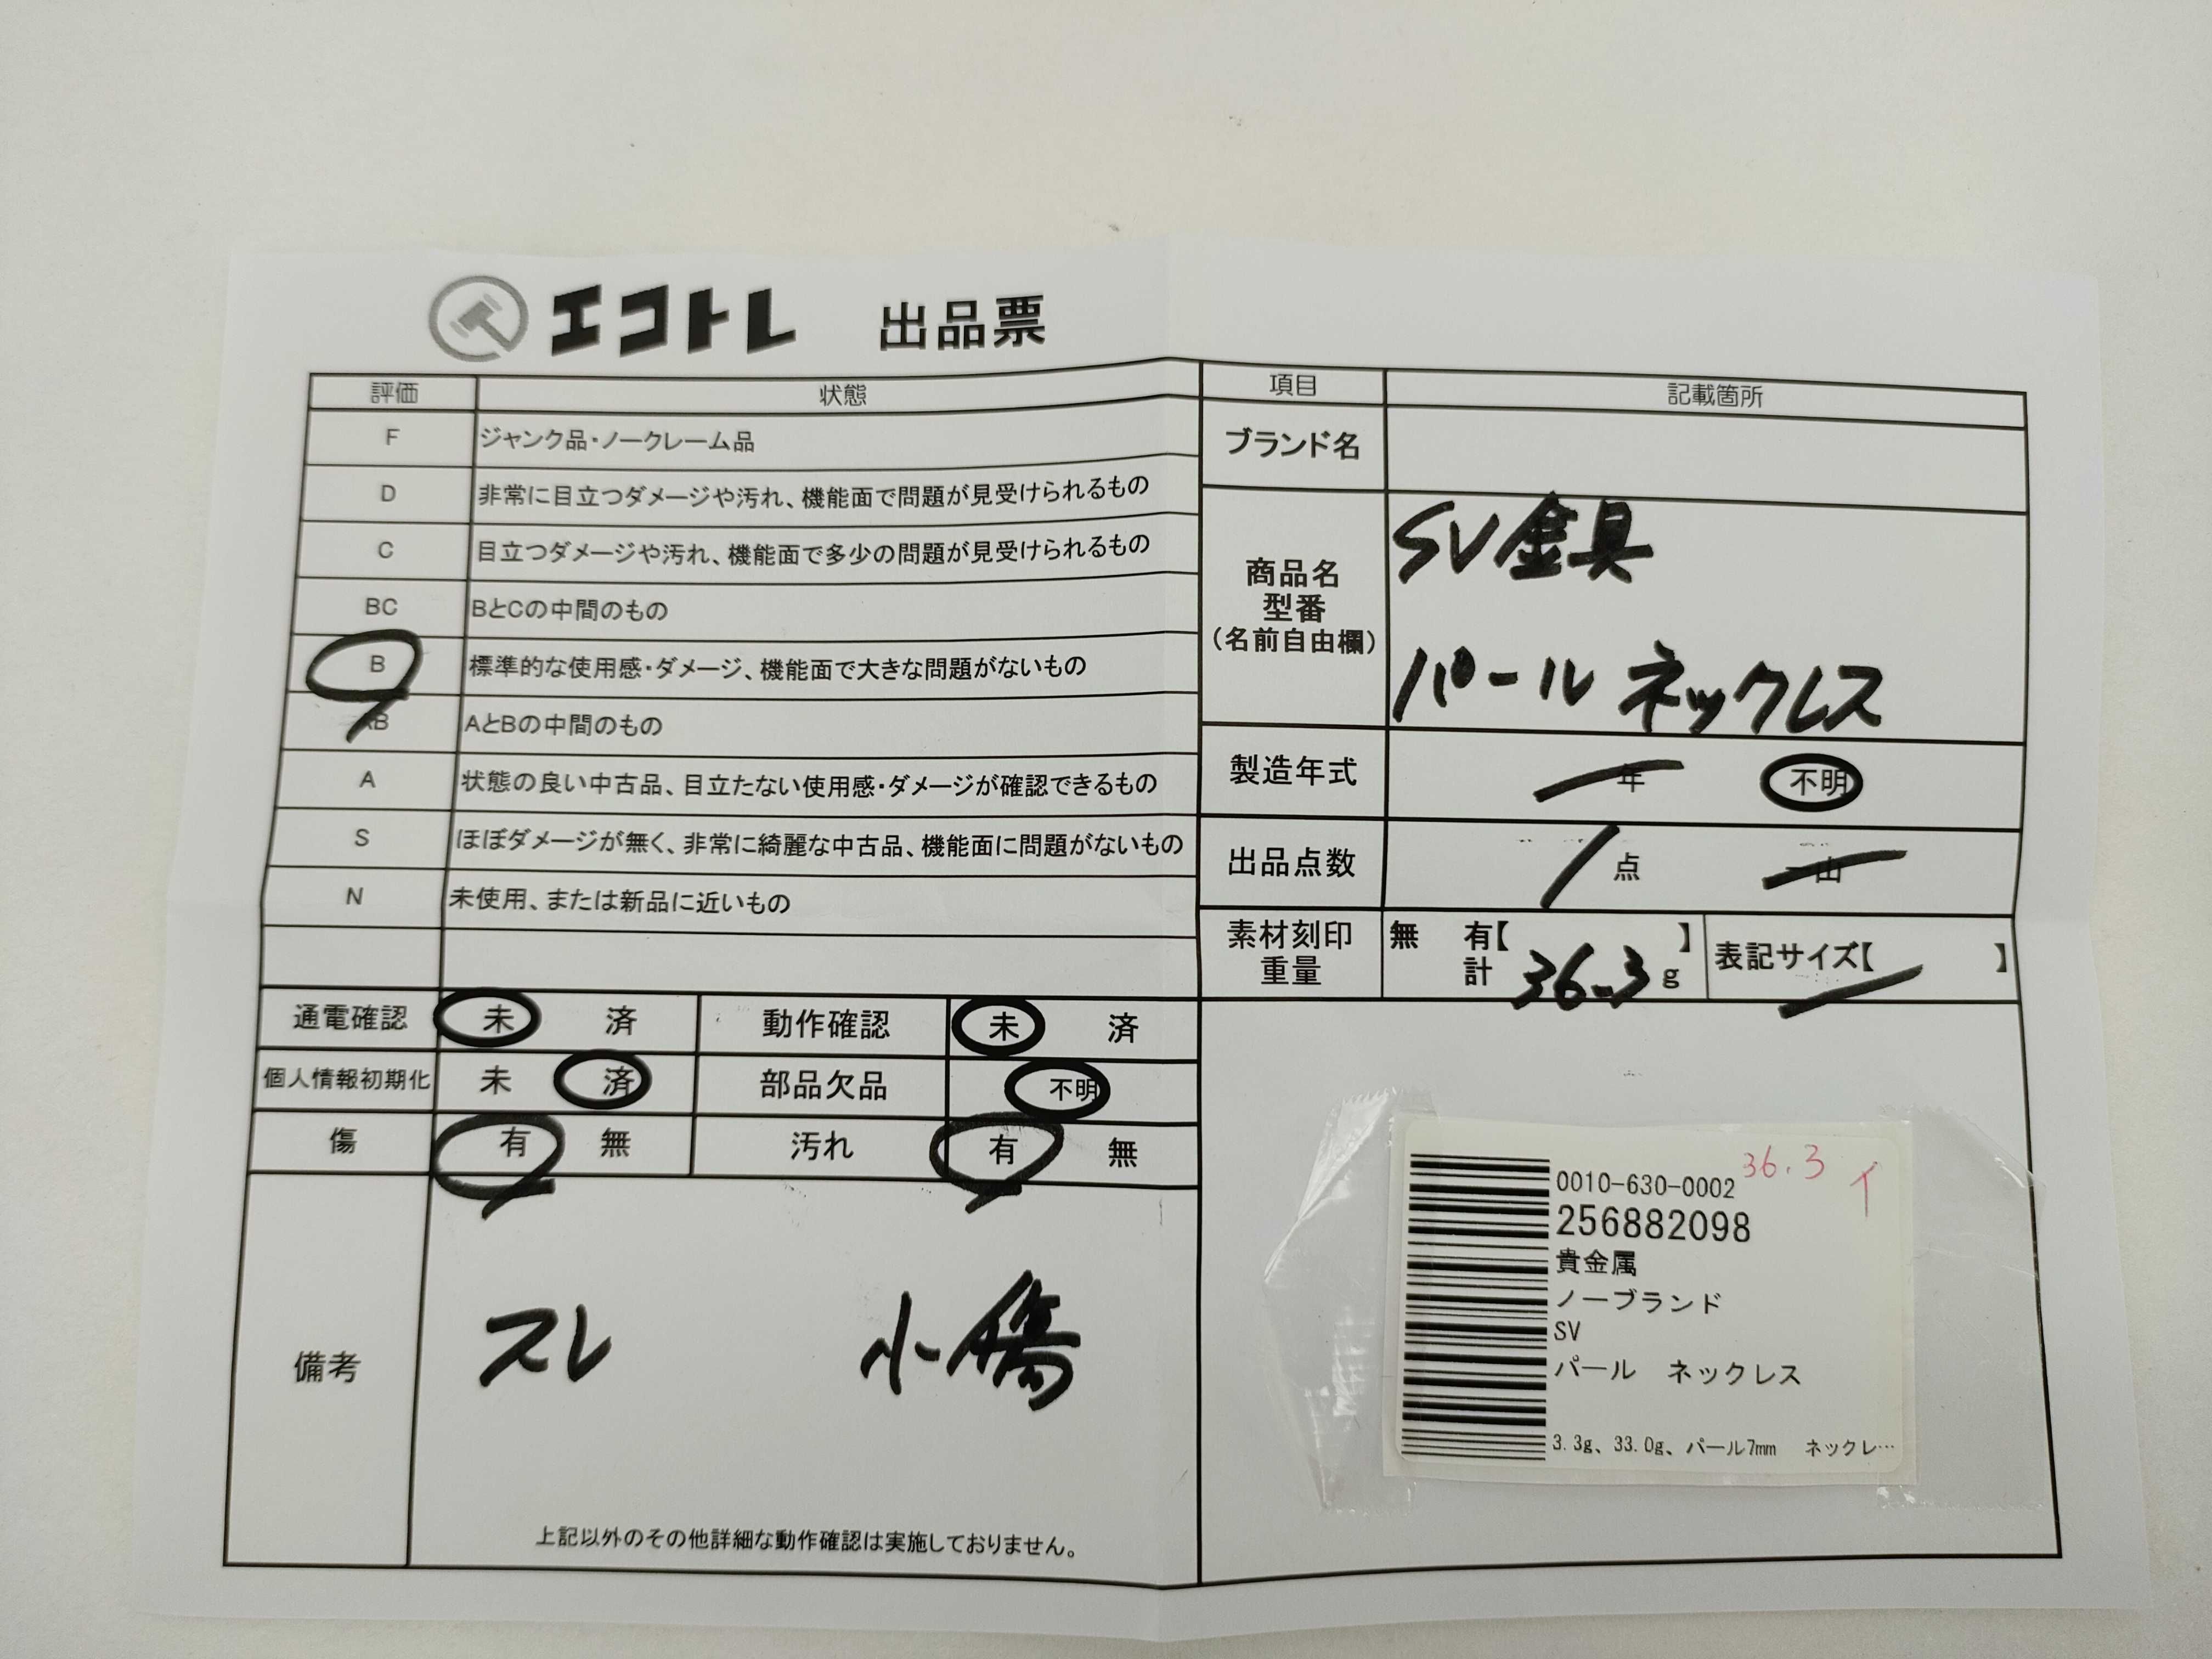 エコトレ 出品票
評価 状態
F ジャンク品・ノークレーム品
D 非常に目立つダメージや汚れ、機能面で問題が見受けられるもの
C 目立つダメージや汚れ、機能面で多少の問題が見受けられるもの
BC BとCの中間のもの
B 標準的な使用感・ダメージ、機能面で大きな問題がないもの
AB AとBの中間のもの
A 状態の良い中古品、目立たない使用感・ダメージが確認できるもの
S ほぼダメージが無く、非常に綺麗な中古品、機能面に問題がないもの
N 未使用、または新品に近いもの
通電確認 未 済 動作確認 未 済
個人情報初期化 未 済 部品欠品 不明
傷 有 無 汚れ 有 無
備考 スレ 小傷
上記以外のその他詳細な動作確認は実施しておりません。
項目 記載箇所
ブランド名
商品名
型番
(名前自由欄)
SV金具
パール ネックレス
製造年式 年 不明
出品点数 1 点 一山
素材刻印 無 有【 】 表記サイズ【 】
重量 計 36.3 g
36.3 イ
0010-630-0002
256882098
貴金属
ノーブランド
SV
パール ネックレス
3.3g、33.0g、パール7mm ネックレ…